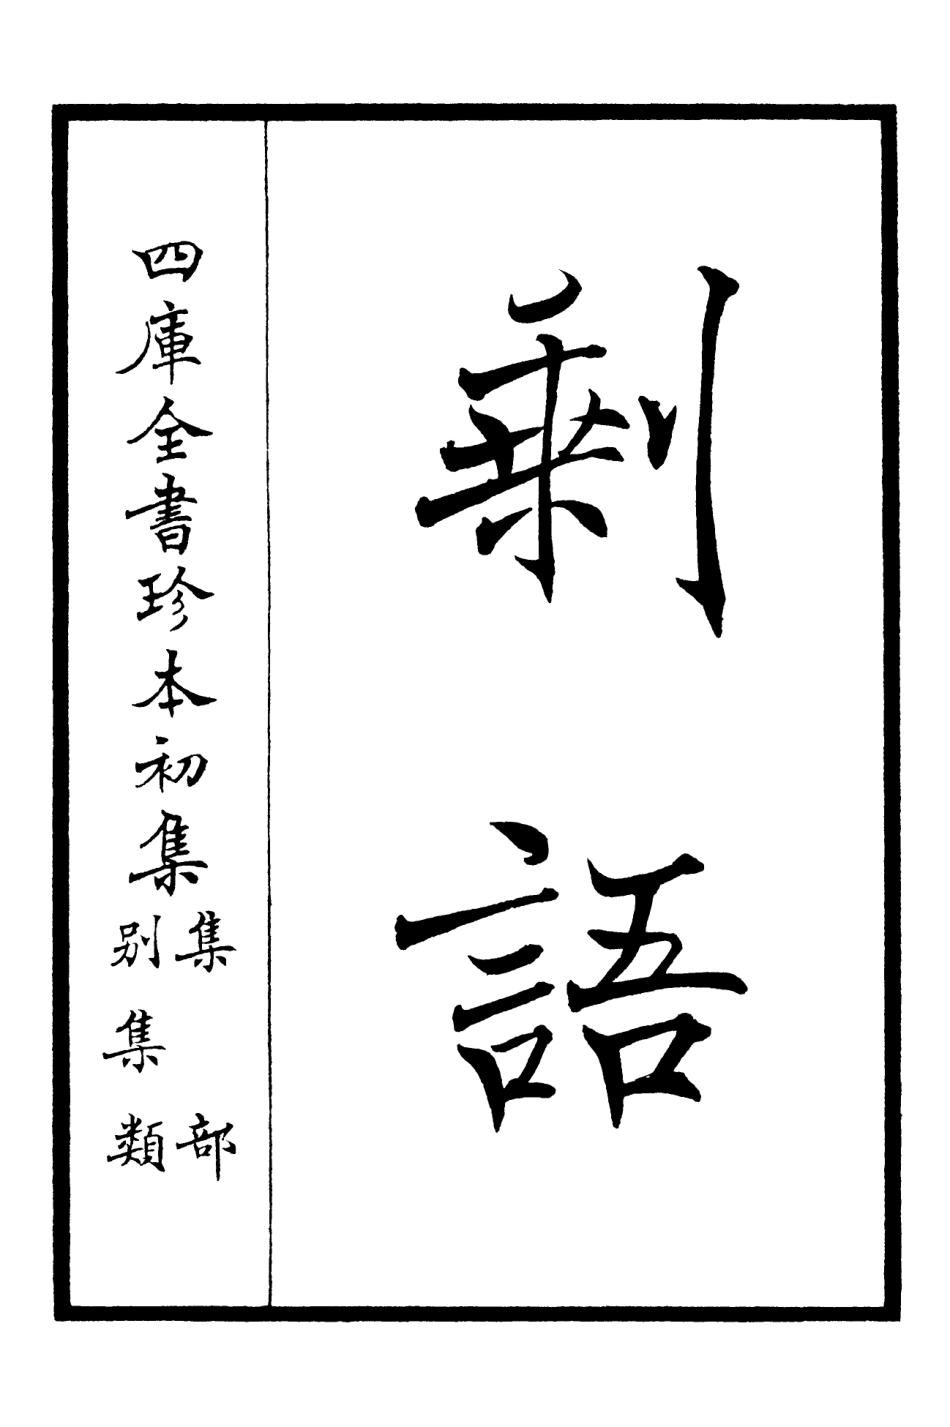 剩語
四庫全書珍本初集
集部
別集類